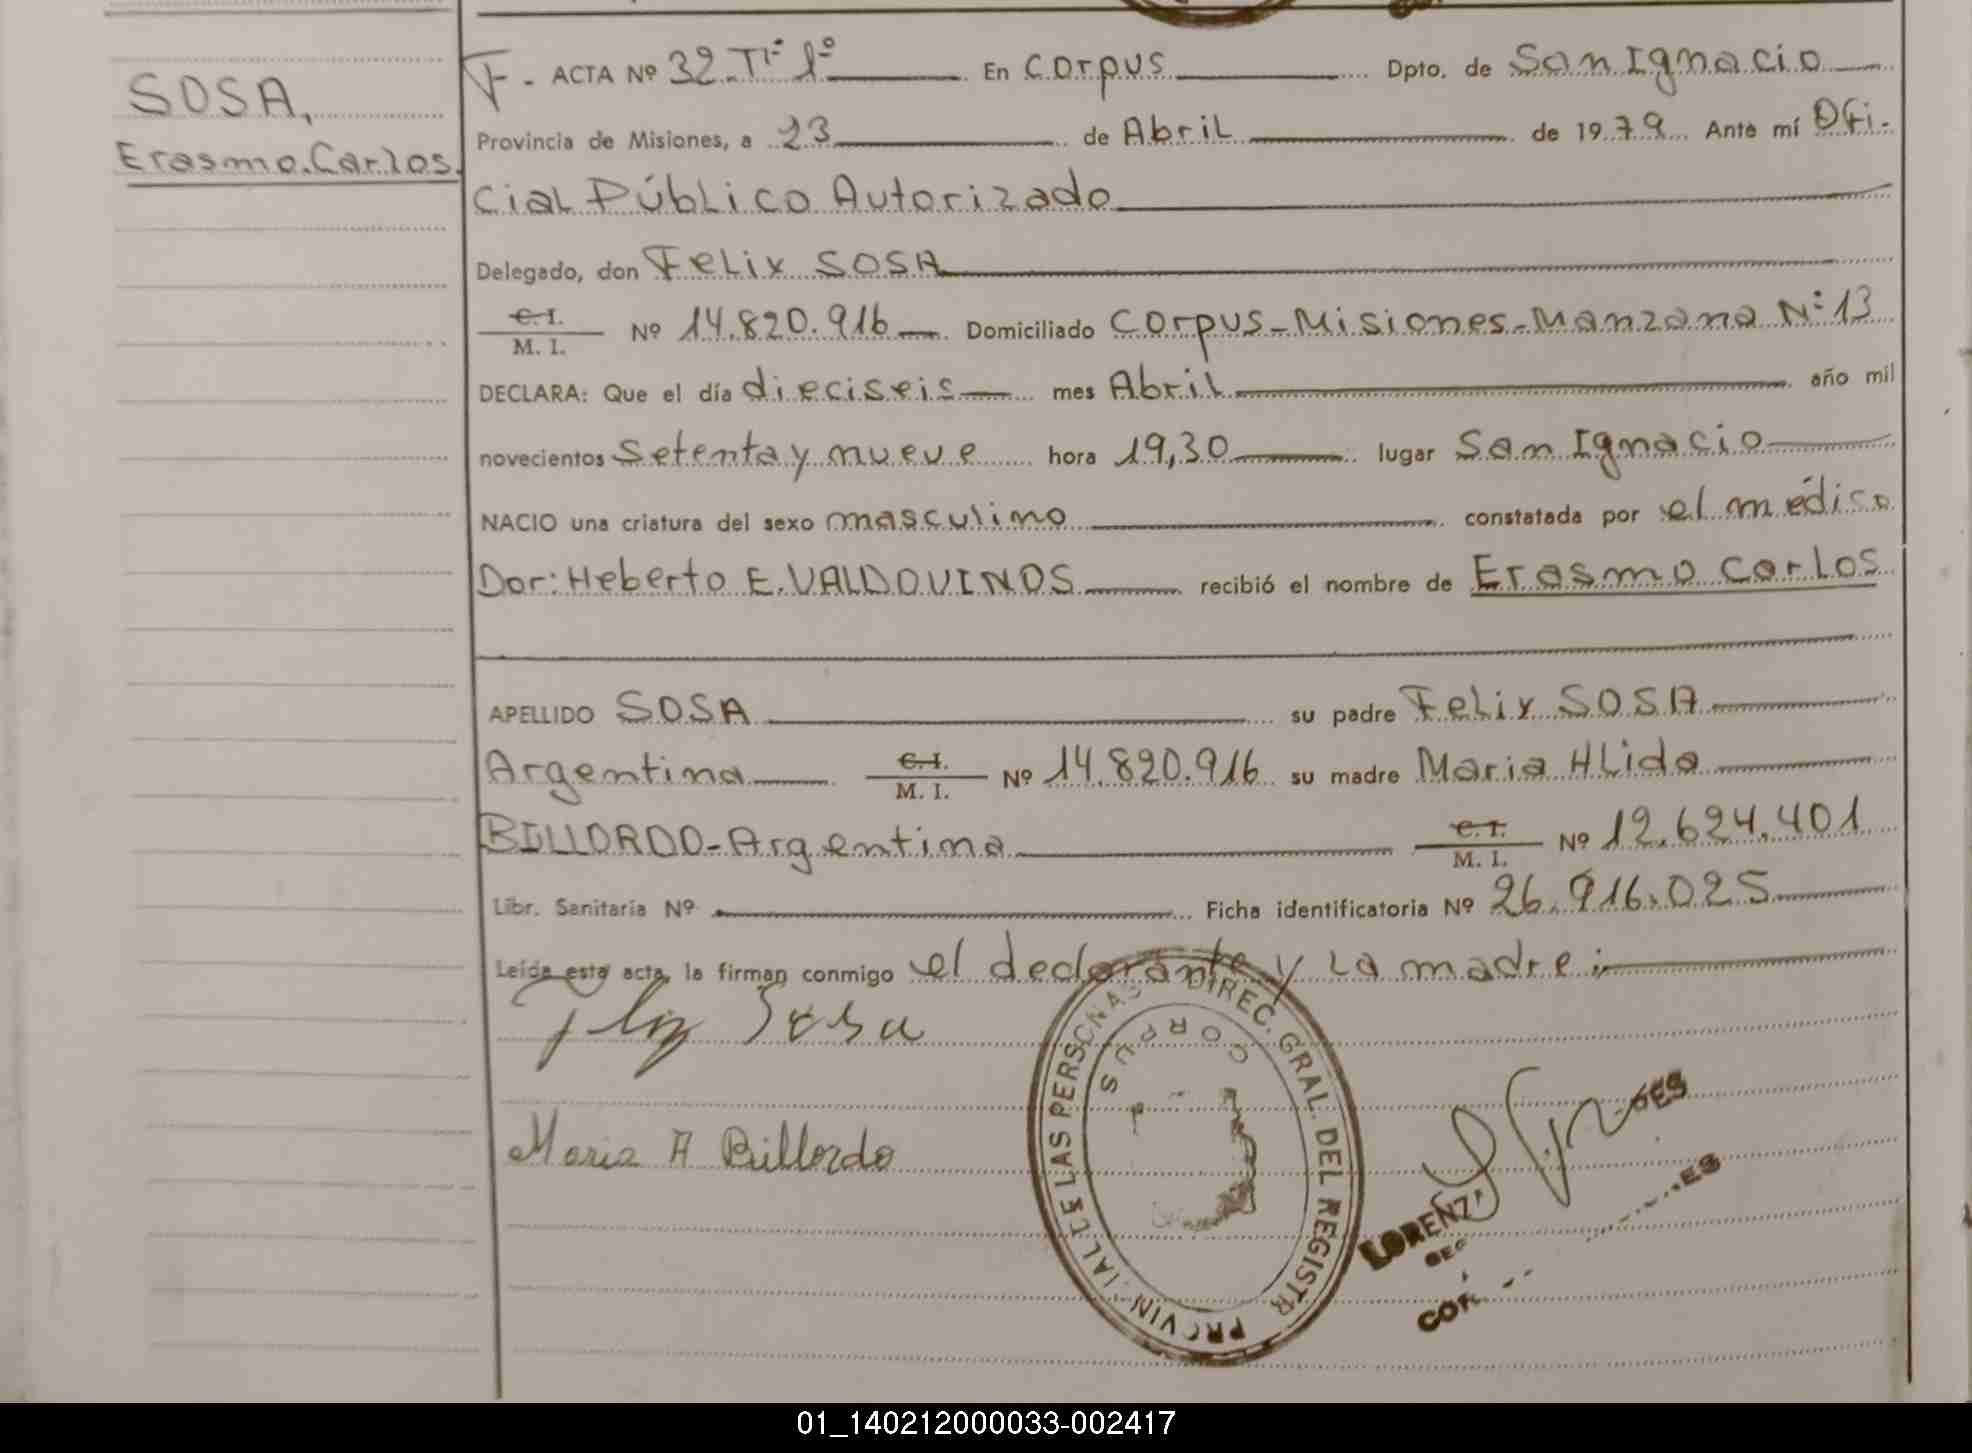 SOSA,
Erasmo Carlos.
F - ACTA Nº 32 Tº 1º En Corpus Dpto. de San Ignacio
Provincia de Misiones, a 23 de Abril de 1979 Ante mí Ofi-
cial Público Autorizado
Delegado, don Felix SOSA
C. I. / M. I. Nº 14.820.916 Domiciliado Corpus-Misiones-Manzana Nº 13
DECLARA: Que el día dieciseis mes Abril año mil
novecientos setenta y nueve hora 19,30 lugar San Ignacio
NACIO una criatura del sexo masculino constatada por el médico
Dor: Heberto E. VALDOVINOS recibió el nombre de Erasmo Carlos
APELLIDO SOSA su padre Felix SOSA
Argentina C. I. / M. I. Nº 14.820.916 su madre Maria Hlida
BILLORDO-Argentina C. I. / M. I. Nº 12.624.401
Libr. Sanitaria Nº Ficha identificatoria Nº 26.916.025
Leída esta acta, la firman conmigo el declarante y la madre:
Felix Sosa
Maria A Billordo
DIREC. GRAL. DEL REGISTR PROVINCIAL DE LAS PERSONAS
CORPUS
01_140212000033-002417